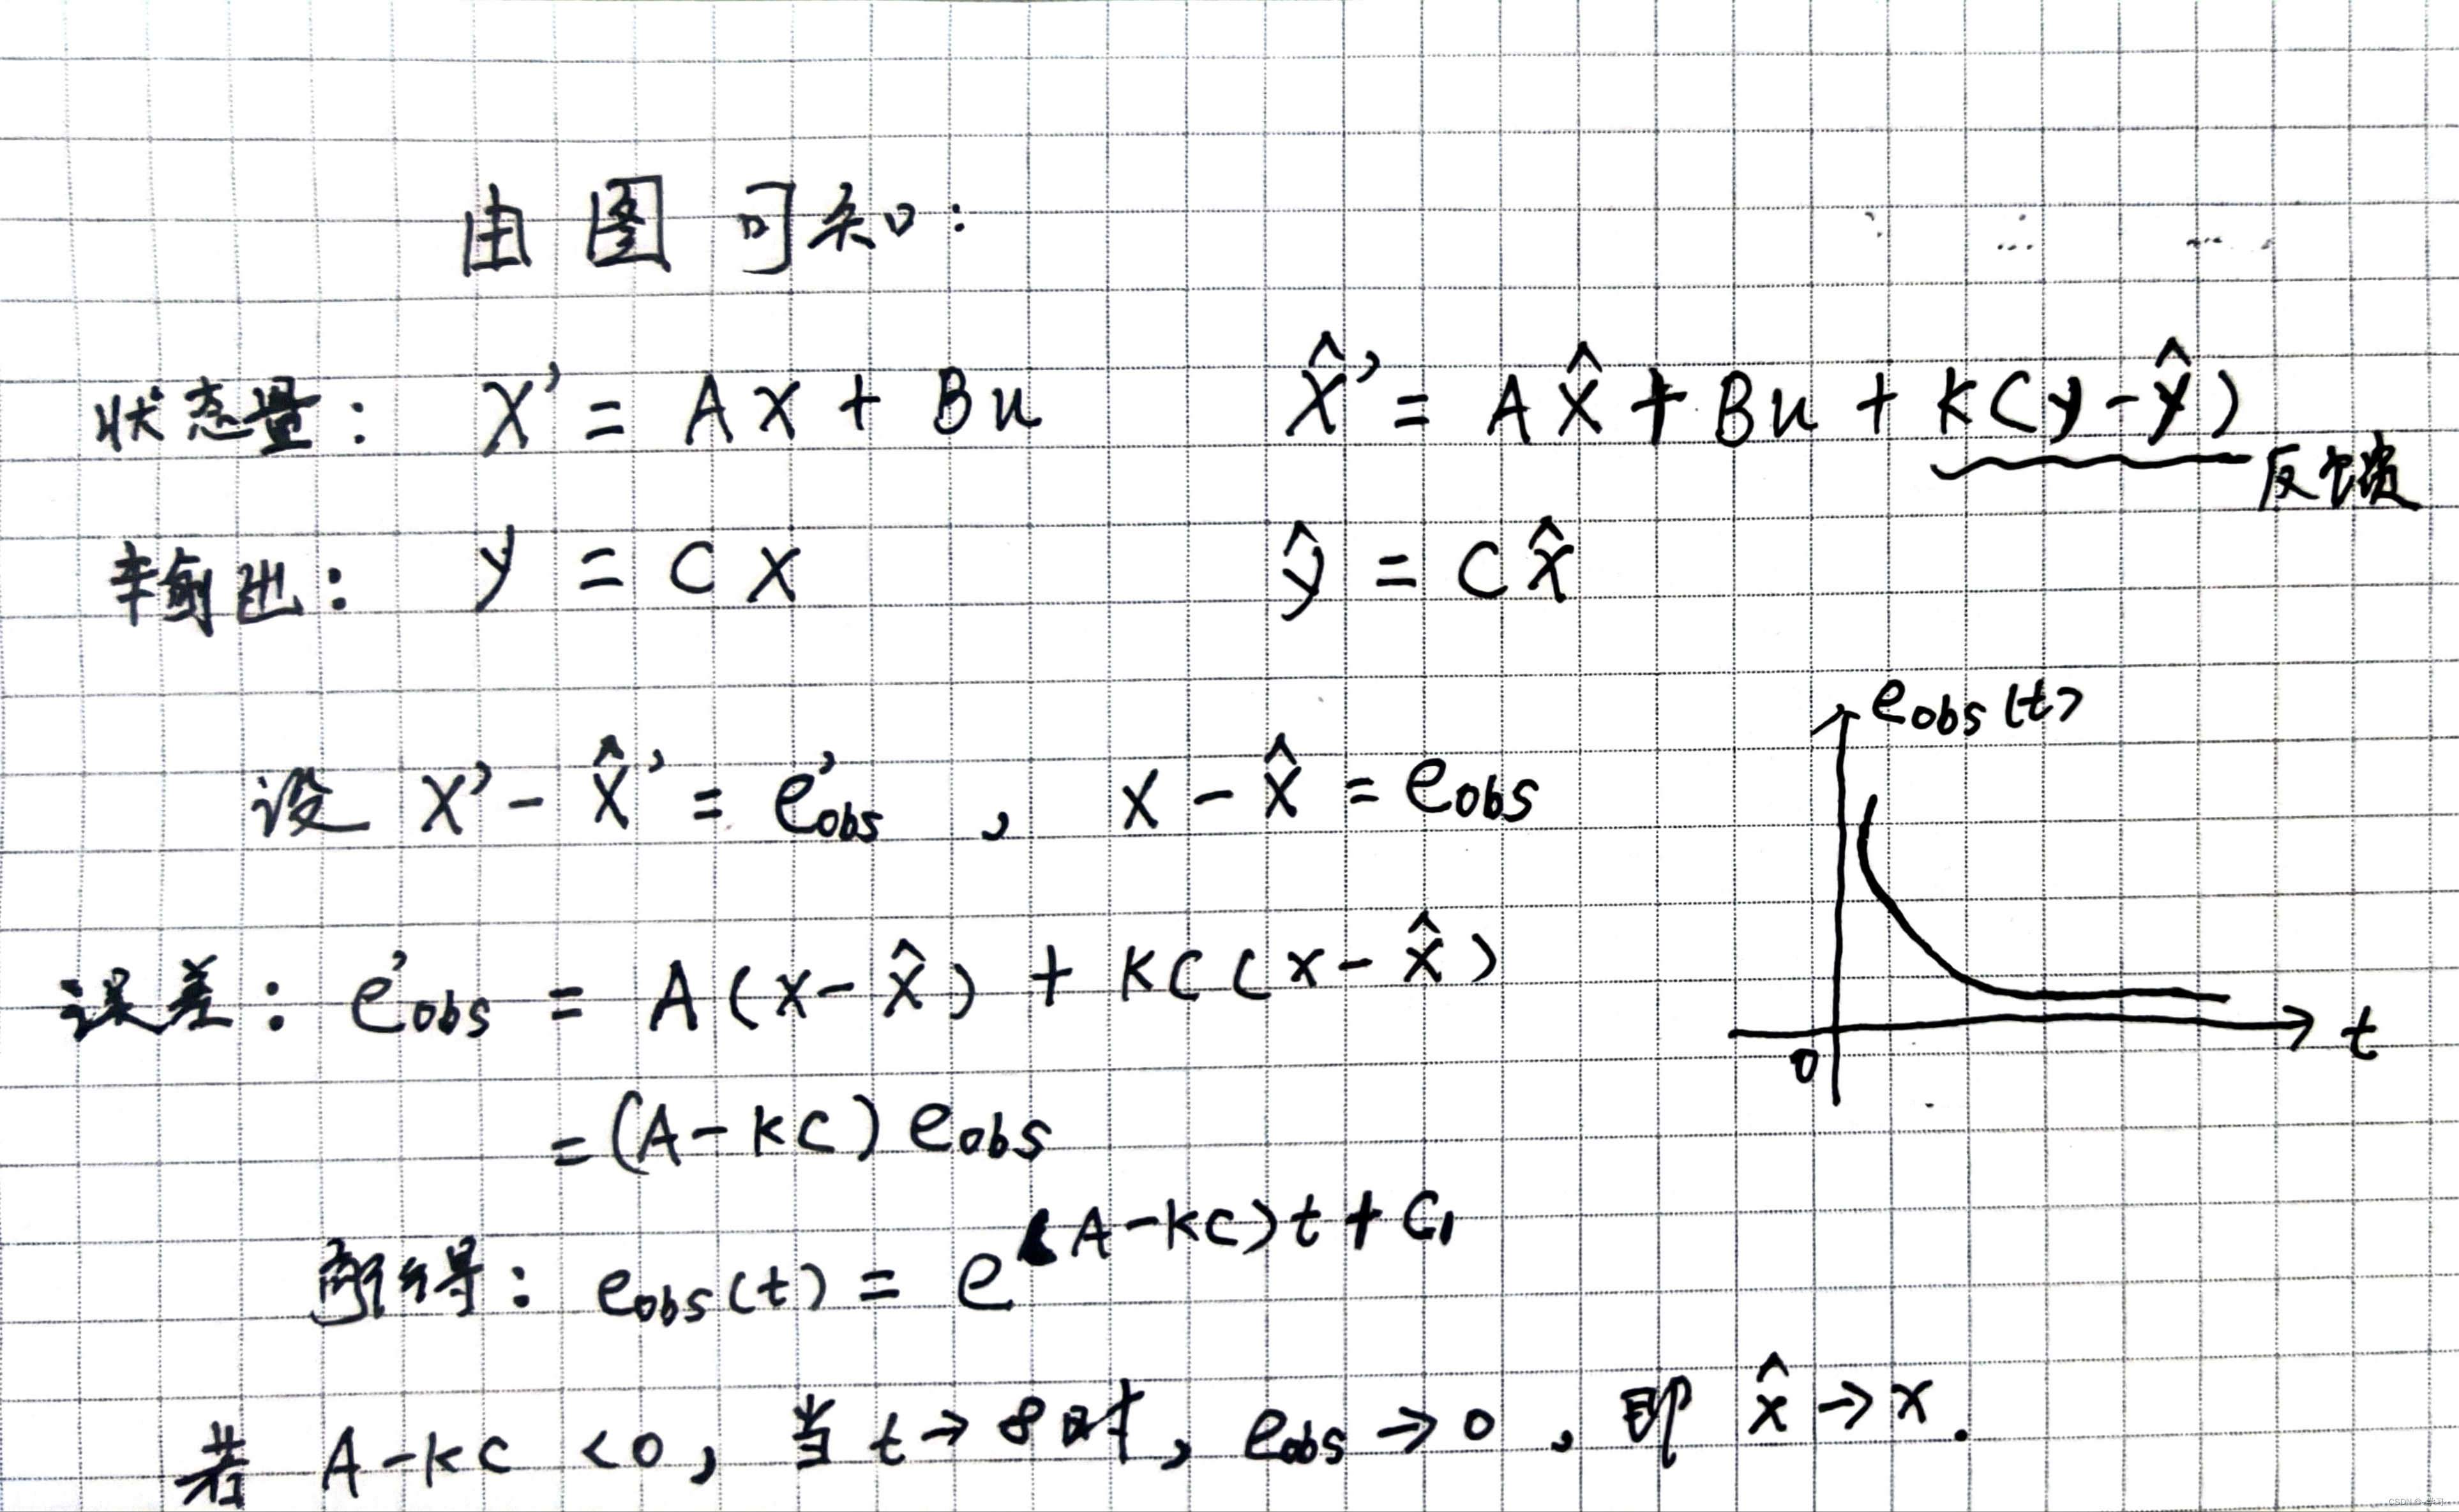 由图可知:
状态量: X' = AX + Bu X̂' = AX̂ + Bu + K(y-ŷ) 反馈
输出: y = CX ŷ = CX̂
设 X' - X̂' = e'obs , X - X̂ = eobs
eobs(t)
误差: e'obs = A(X-X̂) + KC(X-X̂)
0 t
=(A-KC)eobs
所得: eobs(t) = e^(A-KC)t+C₁
若 A-KC <0, 当 t→∞时, eobs→0, 即 X̂→X.